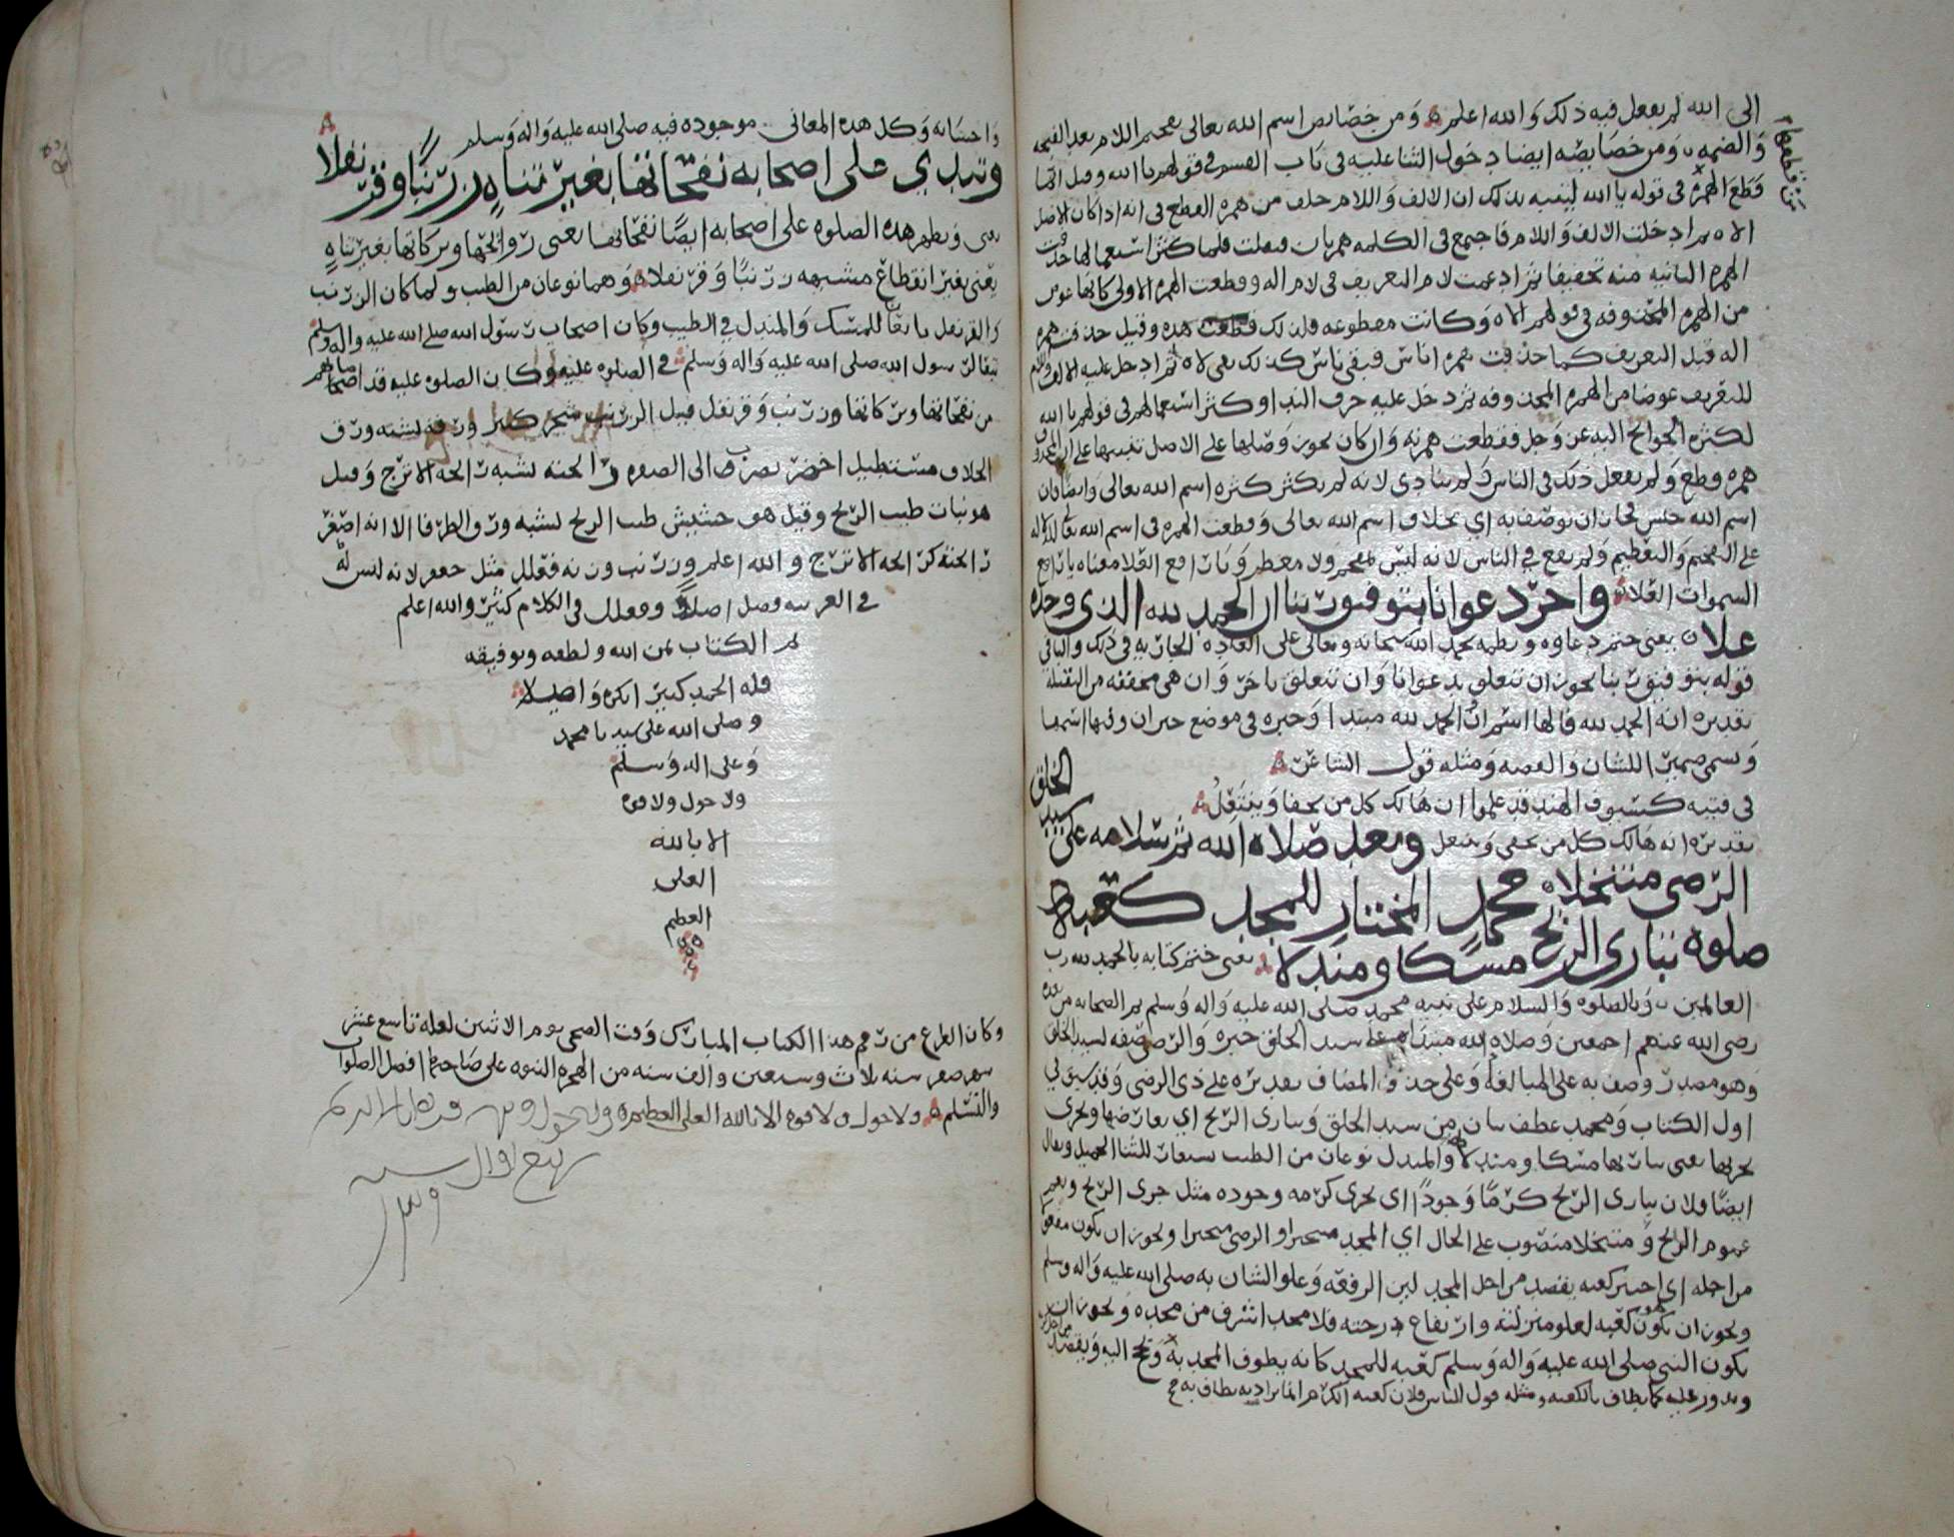 الى الله لم يفعل فيه ذلك والله اعلم ومن خصايص اسم الله تعالى تفخيم اللام بعد الفتحه
والضمه ومن خصايصه ايضا دخول التا عليه في باب القسم في قولهم تا الله وقيل انما
قطع الهمزه في قوله يا الله لينبه بذلك ان الالف واللام خلف من همزه القطع في انه اذا كان الاصل
الاه ثم ادخلت الالف واللام فاجتمع في الكلمه همزتان فلما كثر استعمالها حذفت
الهمزه الثانيه منه تخفيفا ثم ادغمت لام التعريف في لام اله وقطعت الهمزه الاولى كانها عوض
من الهمزه المحذوفه في قولهم الاه وكانت مقطوعه فلذلك قطعت هذه وقيل حذفت همزه
اله قبل التعريف كما حذفت همزه اناس فبقي ناس كذلك بقي لاه ثم ادخل عليه الالف واللام
للتعريف عوضا من الهمزه المحذوفه ثم دخل عليه حرف الندا وكثر استعمالهم في قولهم يا الله
لكثره الحوائج اليه عز وجل فقطعت همزته وان كان يجوز وصلها على الاصل تنبيها على ان
همزه قطع ولم يفعل ذلك في الناس لانه لم يكثر كثره اسم الله تعالى وايضا فان
اسم الله جلس فجاز ان توصف به اي بخلاف اسم الله تعالى وقطعت الهمزه في اسم الله تعالى
على التفخيم والتعظيم ولم يقع في الناس لانه ليس بمفخم ولا معظم ويا رافع العلا معناه يا رافع
السموات العلا واخر دعوانا بتوفيق ربنا ان الحمد لله الذي وحده
علا يعني ختم دعاوه ونظمه بحمد الله سبحانه وتعالى على العاده الجاريه في ذلك والباقي
قوله بتوفيق ربنا يجوز ان تتعلق بدعوانا وان تتعلق باخر وان هي مخففه من الثقيله
تقديره انه الحمد لله فالها اسم ان والحمد لله مبتدا وخبره في موضع خبر ان
ويسمى ضمير الشان والقصه ومثله قول الشاعر
في فتيه كسيوف الهند قد علموا ان هالك كل من يحفا وينتعل
تقديره انه هالك كل من يحفى وينتعل وبعد صلاه الله ثم سلامه على سيد الخلق
الرضى متنخلا محمد المختار للمجد كعبة
صلوه تبارى الريح مسكا ومندلا يعني ختم كتابه بالحمد لله رب
العالمين وبالصلوه والسلام على نبيه محمد صلى الله عليه واله وسلم ثم الصحابه من بعده
رضى الله عنهم اجمعين وصلاه الله مبتدا وعلى سيد الخلق خبره والرضى صفه لسيد الخلق
وهو مصدر وصف به على المبالغه وعلى حذف المضاف تقديره على ذي الرضى وقد سبق في
اول الكتاب ومحمد عطف بيان من سيد الخلق وتبارى الريح اي تعارضها وتجري
جريها ومسكا ومندلا والمندل نوعان من الطيب يستعار للثنا الجميل ويقال
ايضا فلان يبارى الريح كرما وجودا اي يجري كرمه وجوده مثل جرى الريح ويعم
عموم الريح ومتنخلا منصوب على الحال اي المجد متخيرا والرضى متخيرا ويجوز ان يكون مفعول
من اجله اي اختير كعبه يقصد من اجل المجد لين الرفعه وعلو الشان به صلى الله عليه واله وسلم
ويجوز ان يكون كعبه لعلو منزلته وارتفاع درجته فلا مجد اشرف من مجده ويجوز ان
يكون النبي صلى الله عليه واله وسلم كعبه للمجد كانه يطوف المجد به ويحج اليه ويقصد
ويدور عليه كما يطاف بالكعبه ومثله قول الناس فلان كعبه الكرم انما يراد به يطاف به
واحسانه وكل هذه المعانى موجوده فيه صلى الله عليه واله وسلم
وتبدي على اصحابه نفحاتها بغير تناه زرنبا وقرنفلا
يعني وتظهر هذه الصلوه على اصحابه ايضا نفحاتها يعنى روائحها وبركاتها بغير تناه
يعني بغير انقطاع مشبهه زرنبا وقرنفلا وهما نوعان من الطيب ولما كان الزرنب
والقرنفل تابعا للمسك والمندل في الطيب وكان اصحاب رسول الله صلى الله عليه واله وسلم
تبعا لرسول الله صلى الله عليه واله وسلم في الصلوه عليه وكان الصلوه عليه قد اصابهم
من نفحاتها وبركاتها وزرنب وقرنفل قيل الزرنب شجر كبير ورقه يشبه ورق
الخلاف مستطيل اخضر يضرب الى الصفره رائحته تشبه رائحه الاترج وقيل
هو نبات طيب الريح وقيل هو حشيش طيب الريح تشبه ورق الطرفا الا انه اصغر
رائحته كرائحه الاترج والله اعلم وزرنب وزنه فعلل مثل جعفر لانه ليس
في العربيه اصلا وفعلل في الكلام كثير والله اعلم
تم الكتاب بمن الله ولطفه وتوفيقه
فله الحمد كثير ابكره واصيلا
وصلى الله على سيدنا محمد
وعلى اله وسلم
ولا حول ولا قوه
الا بالله
العلى
العظيم
وكان الفراغ من رقم هذا الكتاب المبارك وقت الضحى يوم الاثنين لعله تاسع عشر
شهر صفر سنه ثلاث وسبعين والف سنه من الهجره النبوه على صاحبها افضل الصلوات
والتسليم ولا حول ولا قوه الا بالله العلى العظيم
ربيع اول سنه